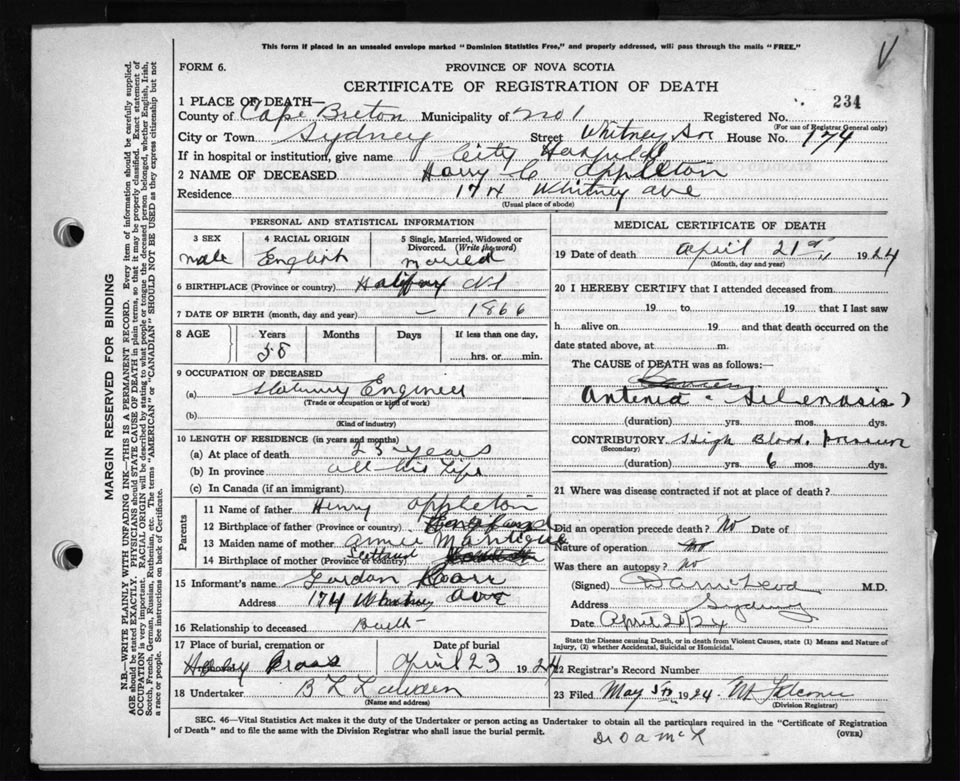 This form if placed in an unsealed envelope marked "Dominion Statistics Free," and properly addressed, will pass through the mails "FREE."
V
FORM 6.
PROVINCE OF NOVA SCOTIA
CERTIFICATE OF REGISTRATION OF DEATH
1 PLACE OF DEATH—
234
County of Cape Breton Municipality of No 1 Registered No.
(For use of Registrar General only)
City or Town Sydney Street Whitney Ave House No. 174
If in hospital or institution, give name City Hospital
2 NAME OF DECEASED Harry C Appleton
Residence 174 Whitney Ave
(Usual place of abode)
PERSONAL AND STATISTICAL INFORMATION
3 SEX
male
4 RACIAL ORIGIN
English
5 Single, Married, Widowed or Divorced. (Write the word)
married
6 BIRTHPLACE (Province or country) Halifax NS
7 DATE OF BIRTH (month, day and year) — 1866
8 AGE
Years Months Days If less than one day,
58 hrs. or min.
9 OCCUPATION OF DECEASED
(a) Stationary Engineer
(Trade or occupation or kind of work)
(b)
(Kind of industry)
10 LENGTH OF RESIDENCE (in years and months)
(a) At place of death 23 years
(b) In province all his life
(c) In Canada (if an immigrant)
Parents
11 Name of father Henry Appleton
12 Birthplace of father (Province or country)
13 Maiden name of mother Annie
14 Birthplace of mother (Province or country) Scotland
15 Informant's name Gordon
Address 174 Whitney Ave
16 Relationship to deceased
17 Place of burial, cremation or
Date of burial
Cross April 23 1924
18 Undertaker B L
(Name and address)
MEDICAL CERTIFICATE OF DEATH
19 Date of death April 21st 1924
(Month, day and year)
20 I HEREBY CERTIFY that I attended deceased from
19 to 19 that I last saw
h alive on 19 and that death occurred on
date stated above, at m.
The CAUSE OF DEATH was as follows:—
(duration) yrs. mos. dys.
CONTRIBUTORY High Blood Pressure
(Secondary)
(duration) yrs. 6 mos. dys.
21 Where was disease contracted if not at place of death?
Did an operation precede death? No Date of
Nature of operation no
Was there an autopsy? No
(Signed) D A McLeod M.D.
Address Sydney
Date April 24
State the Disease causing Death, or in death from Violent Causes, state (1) Means and Nature of Injury, (2) whether Accidental, Suicidal or Homicidal.
22 Registrar's Record Number
23 Filed May 5th 1924
(Division Registrar)
SEC. 46—Vital Statistics Act makes it the duty of the Undertaker or person acting as Undertaker to obtain all the particulars required in the "Certificate of Registration
of Death" and to file the same with the Division Registrar who shall issue the burial permit.
(OVER)
Dr D A McL
MARGIN RESERVED FOR BINDING
N.B.—WRITE PLAINLY WITH UNFADING INK—THIS IS A PERMANENT RECORD. Every item of information should be carefully supplied.
AGE should be stated EXACTLY. PHYSICIANS should STATE CAUSE OF DEATH in plain terms, so that it may be properly classified. Exact statement of
OCCUPATION is very important. RACIAL ORIGIN will be described by stating to what people or tongue the deceased person belonged, whether English, Irish,
Scotch, French, German, Russian, Ruthenian, etc. The terms "AMERICAN" or "CANADIAN" SHOULD NOT BE USED as they express citizenship but not
a race or people. See instructions on back of Certificate.